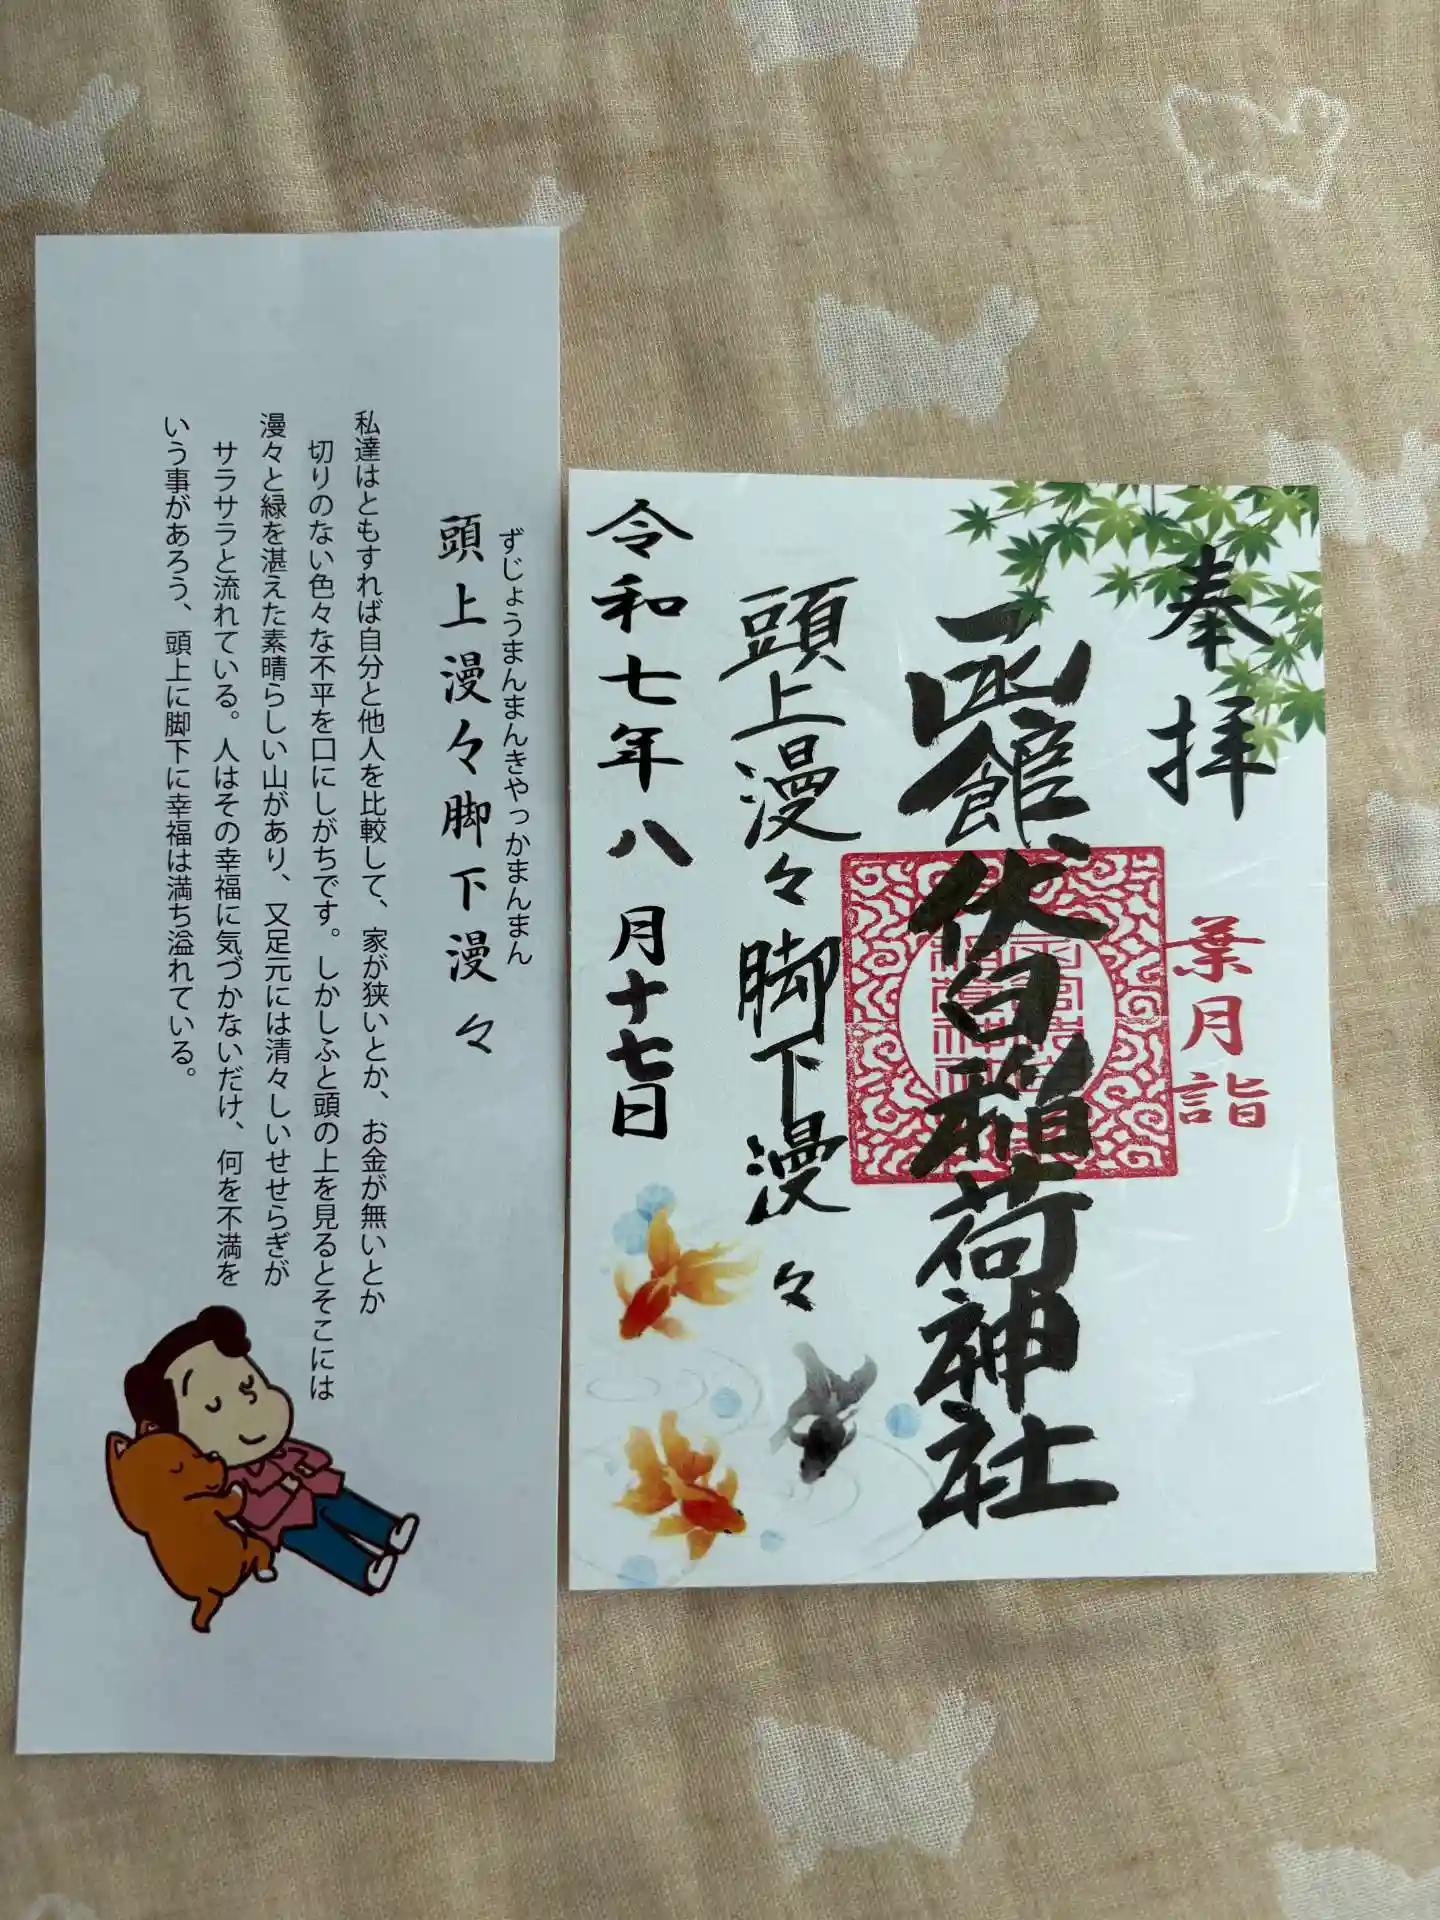 ずじょうまんまんきゃっかまんまん
頭上漫々脚下漫々
私達はともすれば自分と他人を比較して、家が狭いとか、お金が無いとか
切りのない色々な不平を口にしがちです。しかしふと頭の上を見るとそこには
漫々と緑を湛えた素晴らしい山があり、又足元には清々しいせせらぎが
サラサラと流れている。人はその幸福に気づかないだけ、何を不満を
いう事があろう、頭上に脚下に幸福は満ち溢れている。
奉拝
葉月詣
函館伏白稲荷神社
頭上漫々脚下漫々
令和七年八月十七日